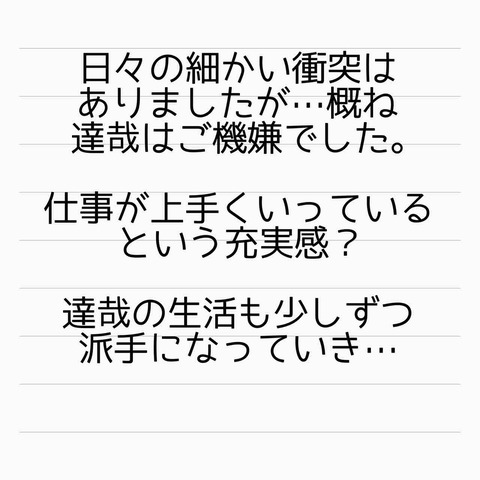 日々の細かい衝突は
ありましたが…概ね
達哉はご機嫌でした。
仕事が上手くいっている
という充実感？
達哉の生活も少しずつ
派手になっていき…